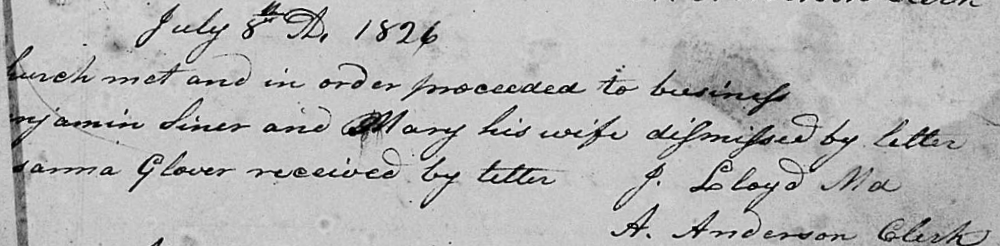 Clerk
July 8th AD, 1826
hurch met and in order proceeded to business
njamin Siner and Mary his wife dismissed by letter
sanna Glover received by letter J. Lloyd Md
A. Anderson Clerk